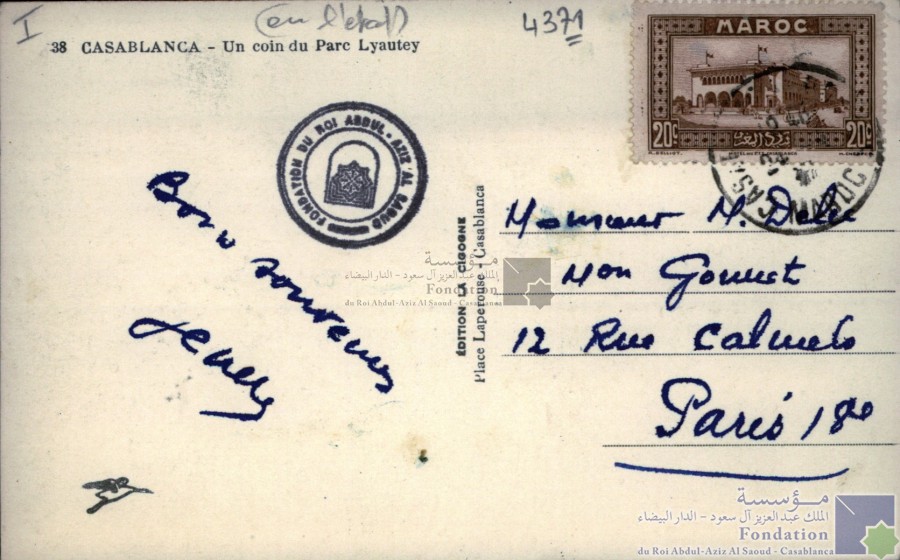 I
(en l'état)
4371
38 CASABLANCA - Un coin du Parc Lyautey
MAROC
20c
20c
FONDATION DU ROI ABDUL-AZIZ AL SAOUD
MAROC
Bons souvenirs
ÉDITION LA CIGOGNE
Place Laperouse - Casablanca
Monsieur M.
Mon
12 Rue
Paris 18e
مؤسسة
الملك عبد العزيز آل سعود - الدار البيضاء
Fondation
du Roi Abdul-Aziz Al Saoud - Casablanca
مؤسسة
الملك عبد العزيز آل سعود - الدار البيضاء
Fondation
du Roi Abdul-Aziz Al Saoud - Casablanca